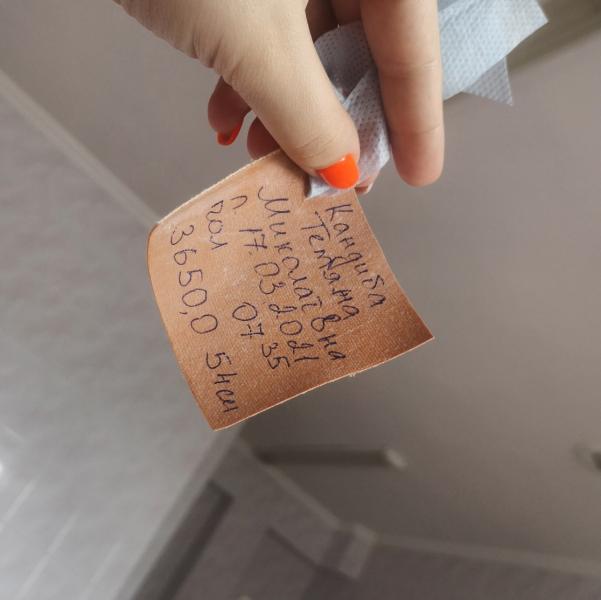 Кандиба
Тетяна
Миколаївна
17.03.2021
П. 07 35
чол
3650,0 54см